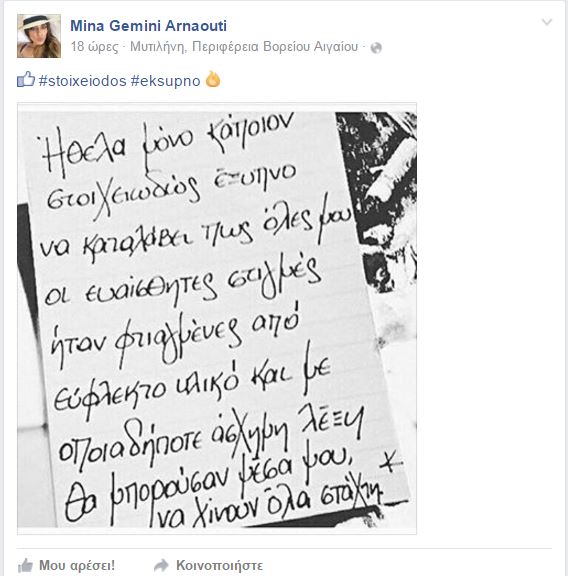 Mina Gemini Arnaouti
18 ώρες · Μυτιλήνη, Περιφέρεια Βορείου Αιγαίου ·
#stoixeiodos #eksupno
Ήθελα μόνο κάποιον
στοιχειωδώς έξυπνο
να καταλάβει πως όλες μου
οι ευαίσθητες στιγμές
ήταν φτιαγμένες από
εύφλεκτο υλικό και με
οποιαδήποτε άσχημη λέξη
θα μπορούσαν μέσα μου,
να γίνουν όλα στάχτη
Μου αρέσει! Κοινοποιήστε